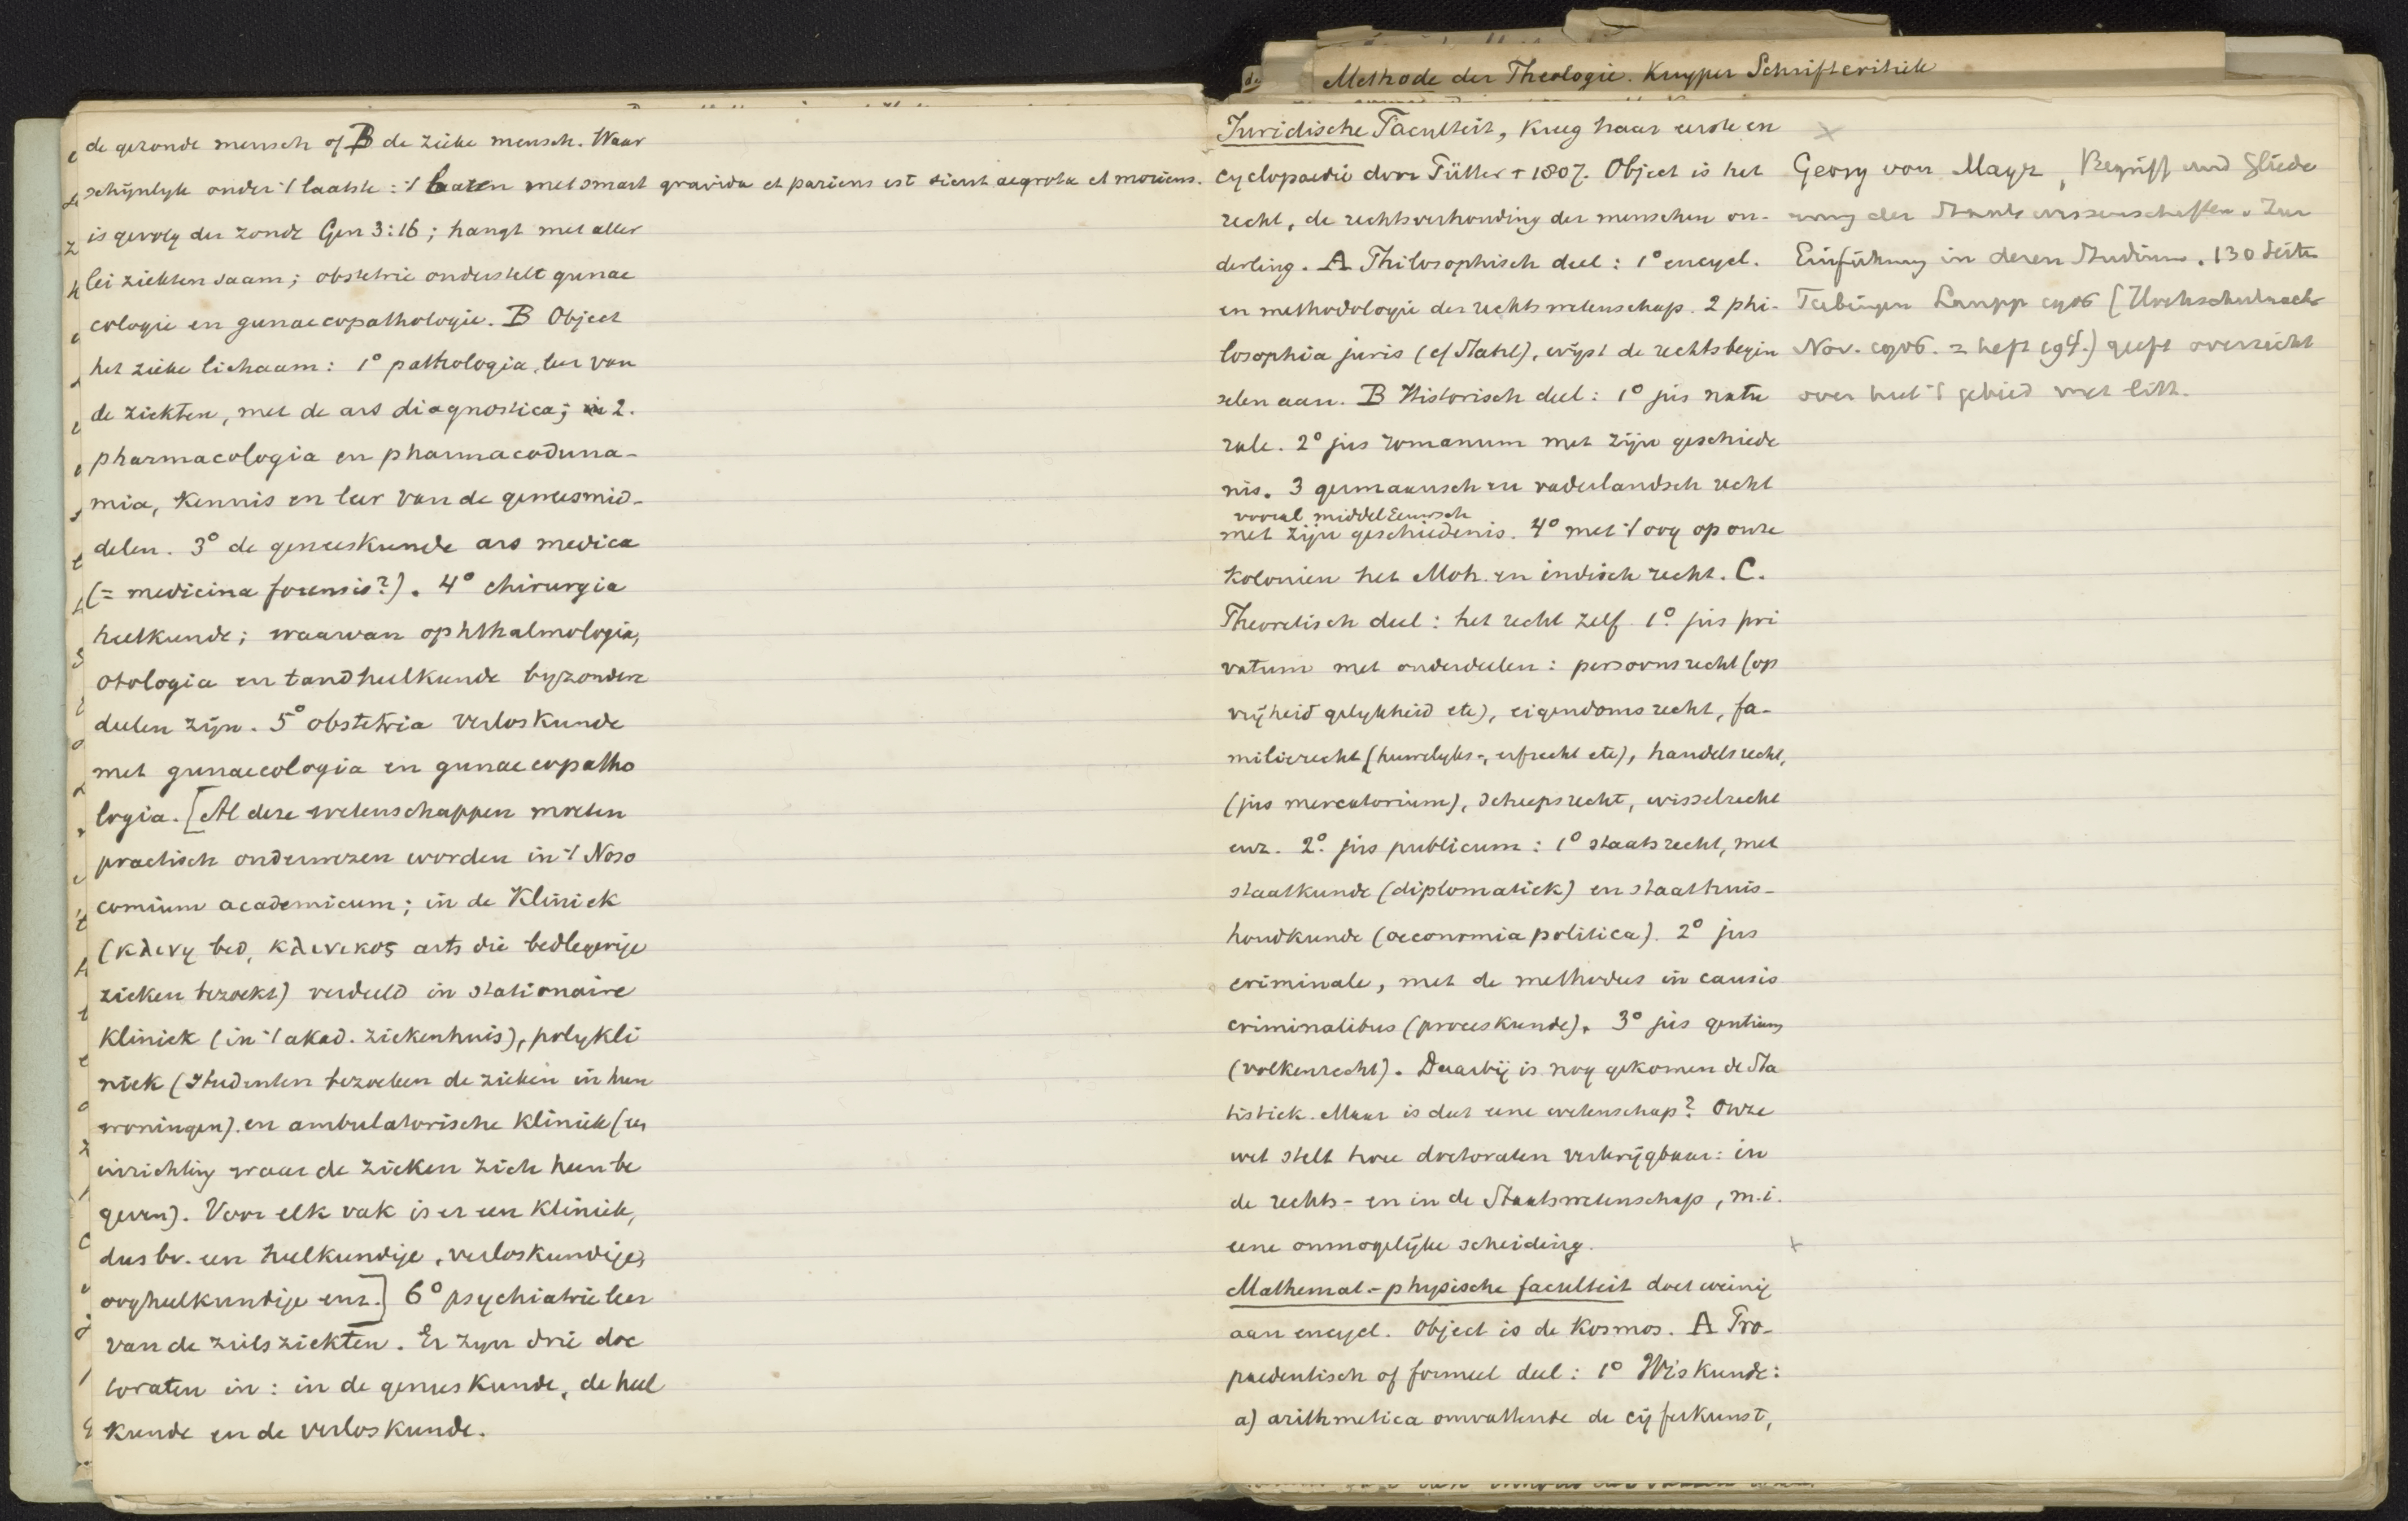 Methode der Theologie. Kuyper Schriftcritiek
de gezonde mensch of B de zieke mensch. Waar
schijnlyk onder 't laatste: 't baren met smart gravida et pariens est sicut aegrota et moriens.
is gevolg der zonde Gen 3:16; hangt met aller
lei ziekten saam; obstetrie onderstelt gunae
cologie en gunaecopathologie. B Object
het zieke lichaam: 1° pathologia, leer van
de ziekten, met de ars diagnostica; 2.
pharmacologia en pharmacoduna-
mia, kennis en leer van de geneesmid-
delen. 3° de geneeskunde ars medica
(= medicina forensis?). 4° chirurgia
heelkunde; waarvan ophthalmologia,
otologia en tandheelkunde byzondere
deelen zijn. 5° obstetria verloskunde
met gunaecologia en gunaecopatho
logia. [Al deze wetenschappen moeten
practisch onderwezen worden in 't Noso
comium academicum; in de Kliniek
(κλινη bed, κλινικος arts die bedlegerige
zieken bezoekt) verdeeld in stationaire
Kliniek (in 't akad. ziekenhuis), polykli
niek (studenten bezoeken de zieken in hun
woningen) en ambulatorische kliniek (een
inrichting waar de zieken zich heen be
geven). Voor elk vak is er een kliniek,
dus bv. een heelkundige, verloskundige,
oogheelkundige enz.] 6° psychiatrie leer
van de zielsziekten. Er zyn drie doc
toraten in: in de geneeskunde, de heel
kunde en de verloskunde.
Juridische Faculteit, kreeg haar eerste en
cyclopaedie door Pütter † 1807. Object is het
recht, de rechtsverhouding der menschen on-
derling. A Philosophisch deel: 1° encycl.
en methodologie der rechtswetenschap. 2 phi-
losophia juris (cf Stahl), wijst de rechtsbegin
selen aan. B Historisch deel: 1° jus natu
rale. 2° jus romanum met zijn geschiede
nis. 3 germaansch en vaderlandsch recht
vooral middeleeuwsch
met zijn geschiedenis. 4° met 't oog op onze
Kolonien het Moh. en indisch recht. C.
Theoretisch deel: het recht zelf 1° jus pri
vatum met onderdeelen: persoonsrecht (op
vrijheid gelykheid etc), eigendomsrecht, fa-
milierecht (huwelyks-, erfrecht etc), handelsrecht,
(jus mercatorium), scheepsrecht, wisselrecht
enz. 2° jus publicum: 1° staatsrecht, met
staatkunde (diplomatiek) en staathuis-
houdkunde (oeconomia politica). 2° jus
criminale, met de methodus in causis
criminalibus (proceskunde). 3° jus gentium
(volkenrecht). Daarbij is nog gekomen de Sta
tistiek. Maar is dat eene wetenschap? Onze
wet stelt twee doctoraten verkrijgbaar: in
de rechts- en in de Staatswetenschap, m.i.
eene onmogelijke scheiding.
Mathemat.-physische faculteit doet weinig
aan encycl. Object is de Kosmos. A Pro-
paedeutisch of formeel deel: 1° Wiskunde:
a) arithmetica omvattende de cijferkunst,
Georg von Mayr, Begriff und Gliede
rung der Staatswissenschaften. Zur
Einführung in deren Studium. 130 Seite
Tubingen Laupp 1906 [Hochschulnachr
Nov. 1906. 2 heft 194.) geeft overzicht
over heel 't gebied met litt.